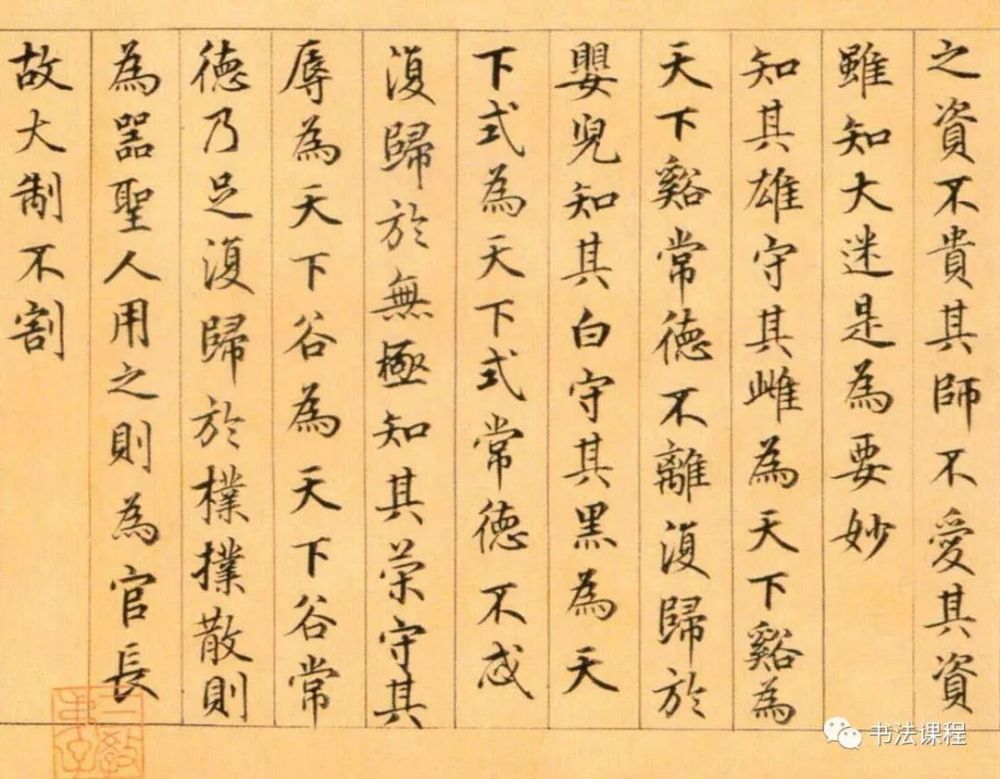 之資不貴其師不愛其資
雖知大迷是為要妙
知其雄守其雌為天下谿為
天下谿常德不離復歸於
嬰兒知其白守其黑為天
下式為天下式常德不忒
復歸於無極知其榮守其
辱為天下谷為天下谷常
德乃足復歸於樸樸散則
為器聖人用之則為官長
故大制不割
书法课程